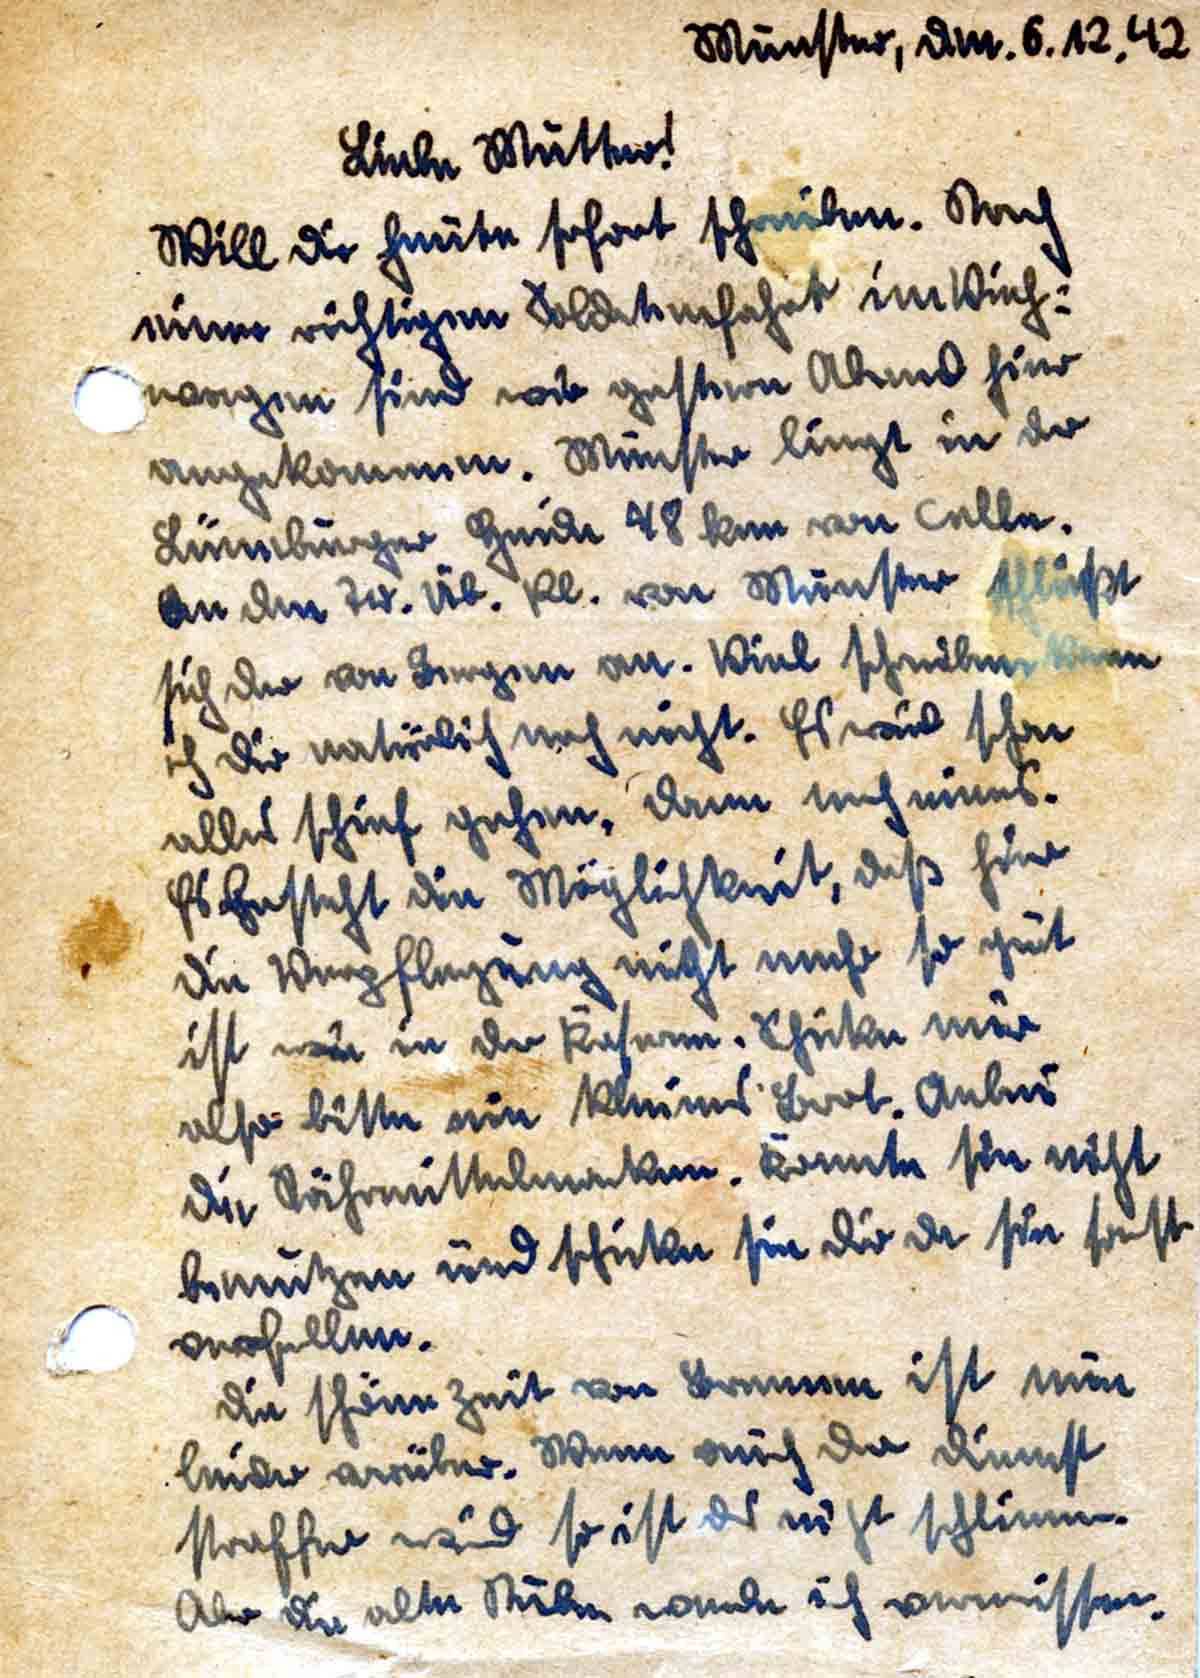 Münster, den. 6.12.42
Liebe Mutter!
Will dir heute sofort schreiben. Nach
einer richtigen Soldatenfahrt im Vieh-
wagen sind wir gestern Abend hier
angekommen. Münster liegt in der
Lüneburger Heide 48 km von Celle.
An den Tr. Üb. Pl. von Münster schließt
sich der von Bergen an. Viel schreiben kann
ich dir natürlich noch nicht. Es wird schon
alles schief gehen. Dann noch eines.
Es besteht die Möglichkeit, daß hier
die Verpflegung nicht mehr so gut
ist wie in der Kaserne. Schicke mir
also bitte ein kleines Brot. Anbei
die Nährmittelmarken. Konnte sie nicht
benutzen und schicke sie dir da sie sonst
verfallen.
Die schöne Zeit von Bremen ist nun
leider vorüber. Wenn auch der Dienst
straffer wird so ist das nicht schlimm.
Aber die alte Stube werde ich vermissen.